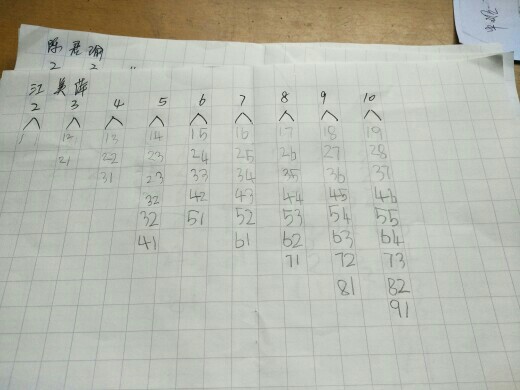 陈君瑜
2 2 "
江美萍
2 3 4 5 6 7 8 9 10
1 12 13 14 15 16 17 18 19
21 22 23 24 25 26 27 28
31 23 33 34 35 36 37
32 42 43 44 45 46
32 51 52 53 54 55
41 61 62 63 64
71 72 73
81 82
91